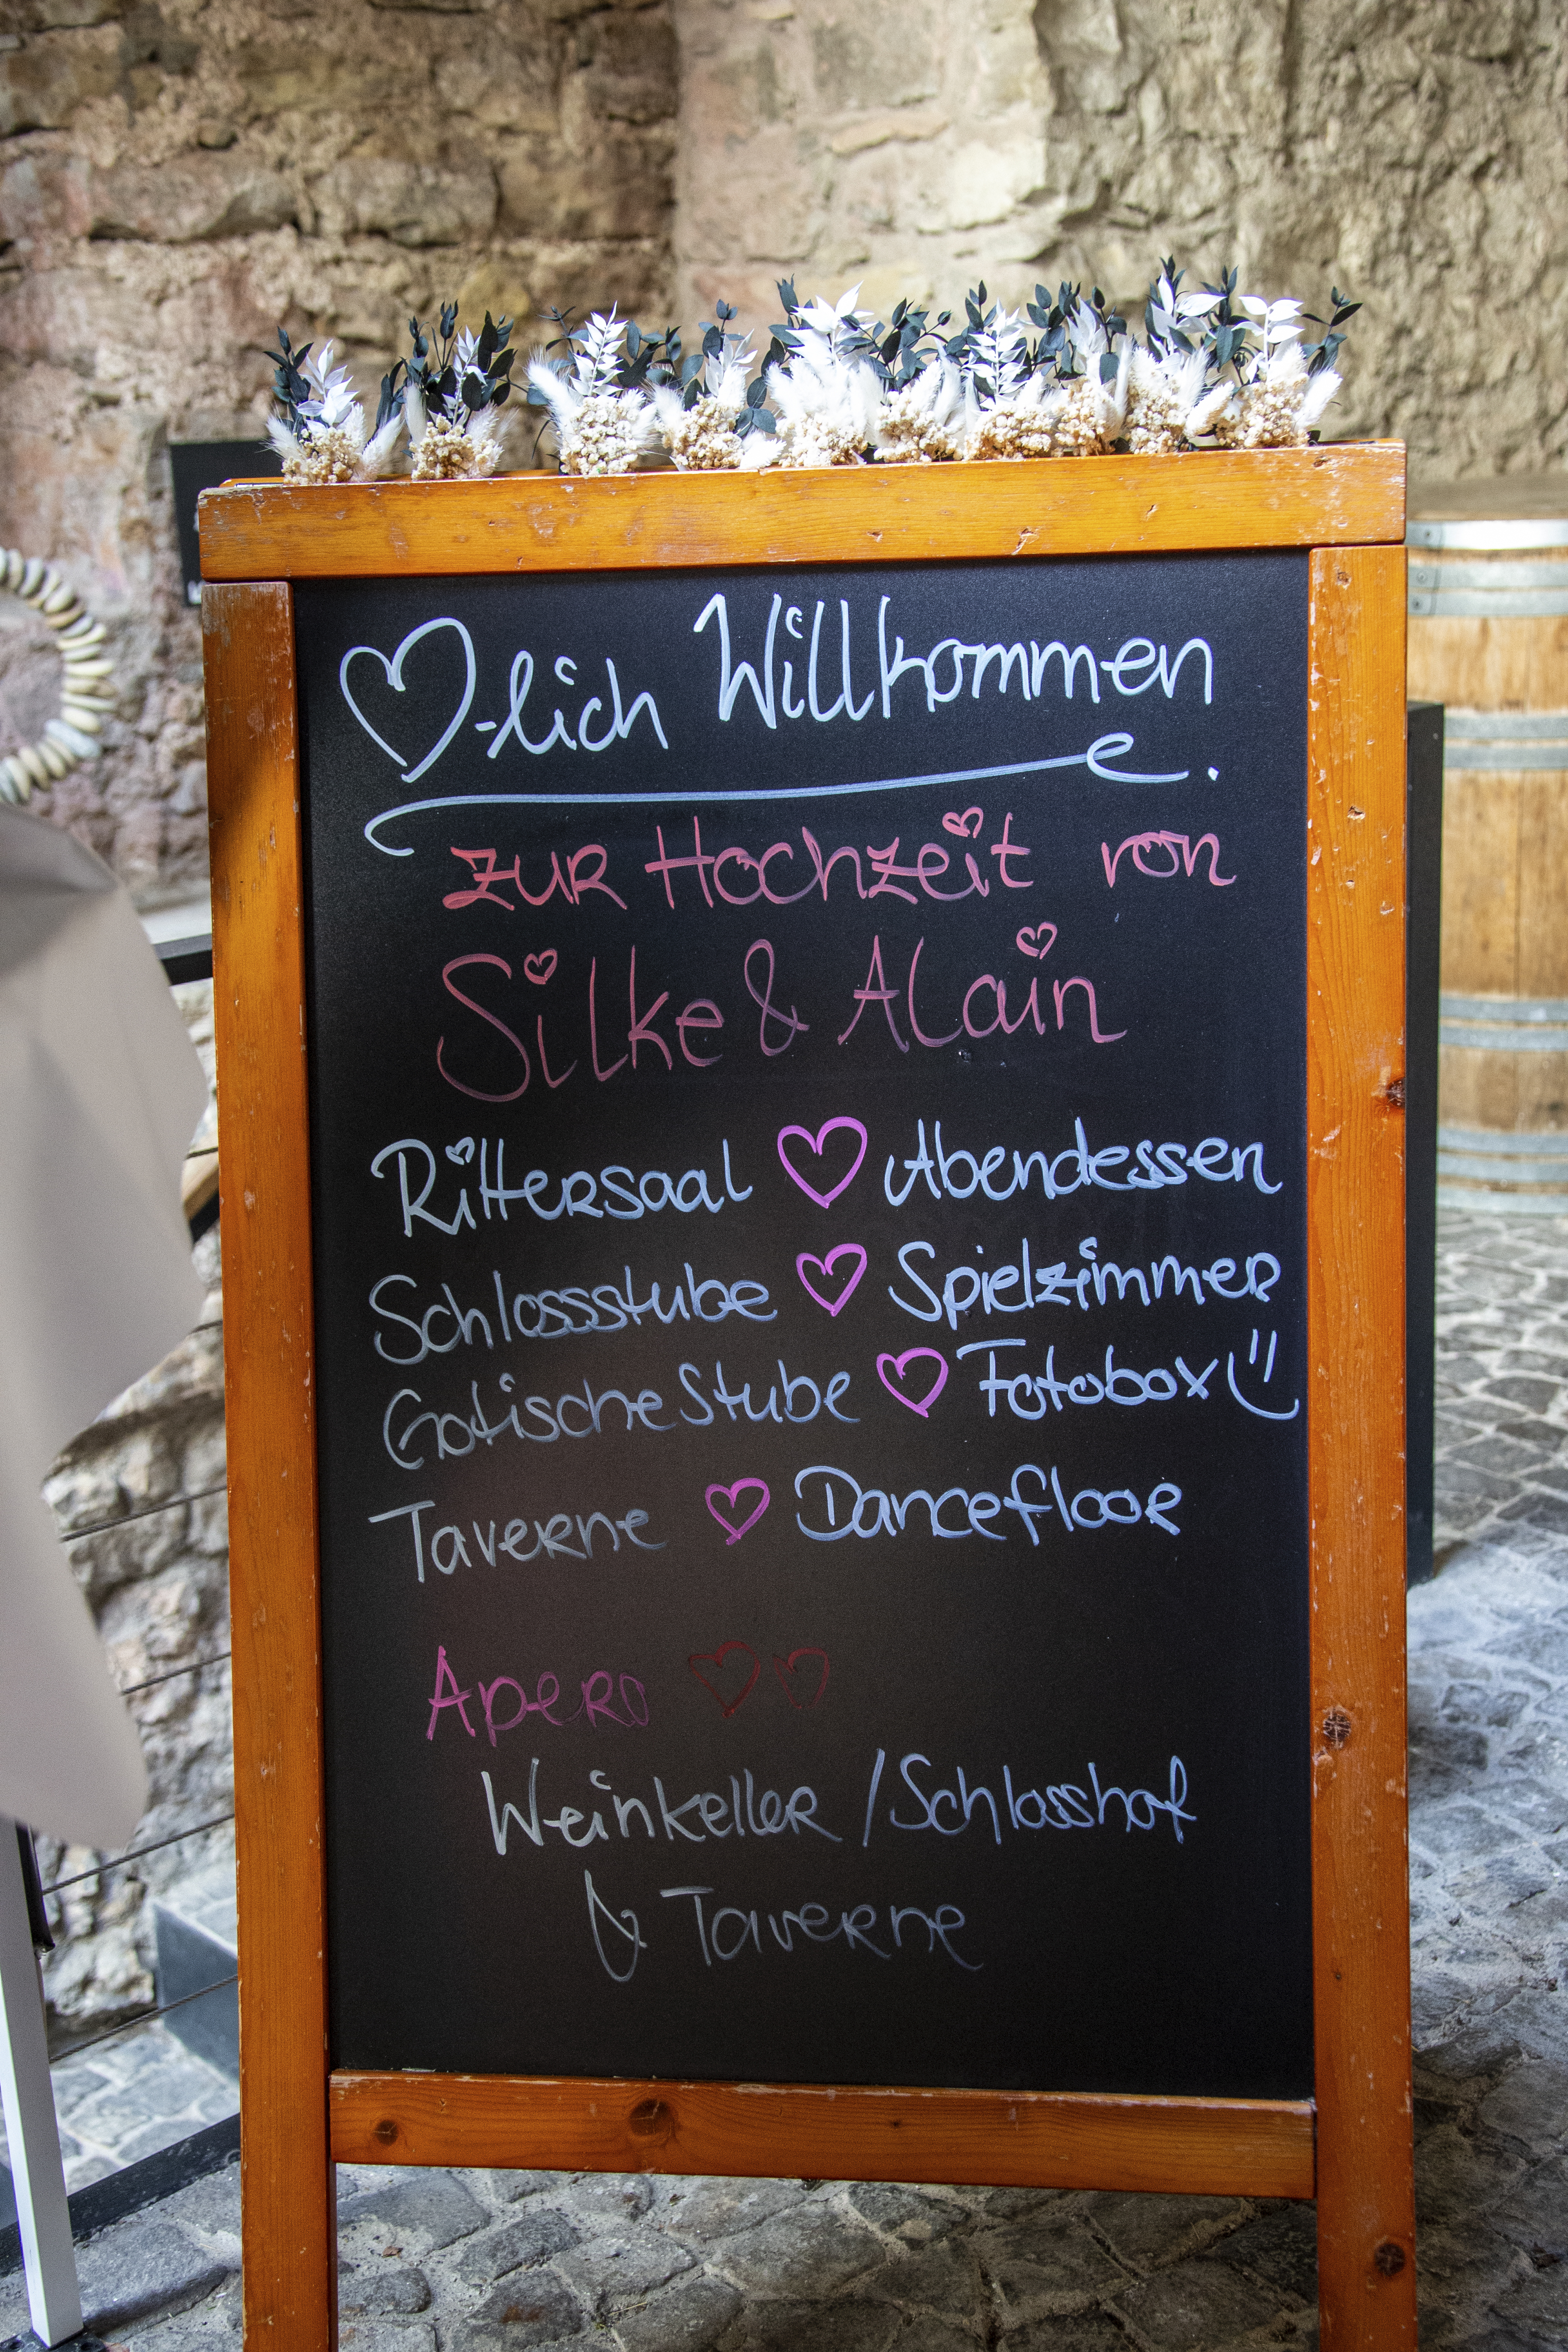 ♡-lich Willkommen.
zur Hochzeit von
Silke & Alain
Rittersaal ♡ Abendessen
Schlossstube ♡ Spielzimmer
Gotische Stube ♡ Fotobox
Taverne ♡ Dancefloor
Apero ♡♡
Weinkeller / Schlosshof
& Taverne